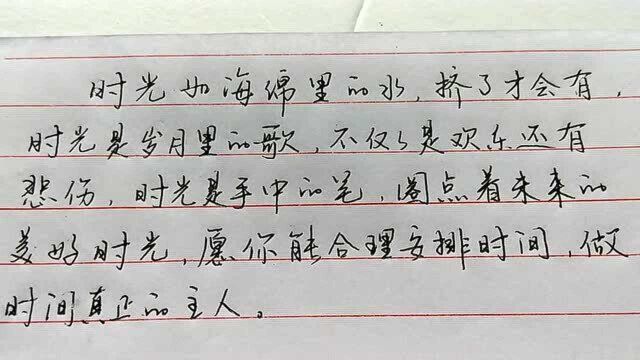 时光如海绵里的水，挤了才会有，
时光是岁月里的歌，不仅仅是欢乐还有
悲伤，时光是手中的笔，圈点着未来的
美好时光，愿你能合理安排时间，做
时间真正的主人。